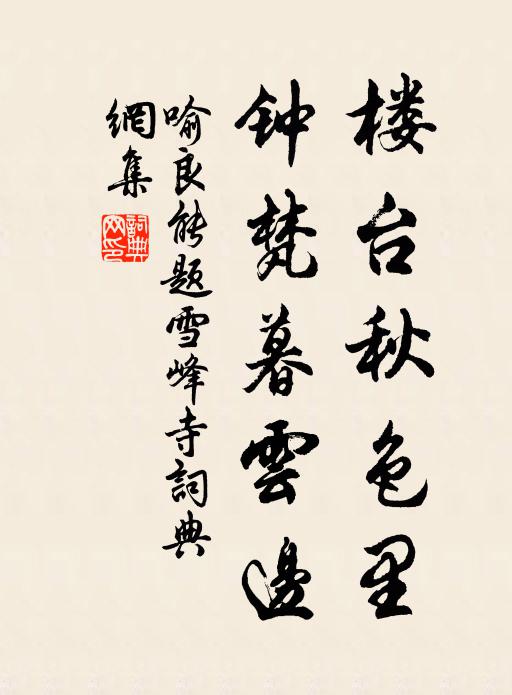 楼台秋色里
钟梵暮雲邊
喻良能题雪峰寺詞典
網集
詞典
网印